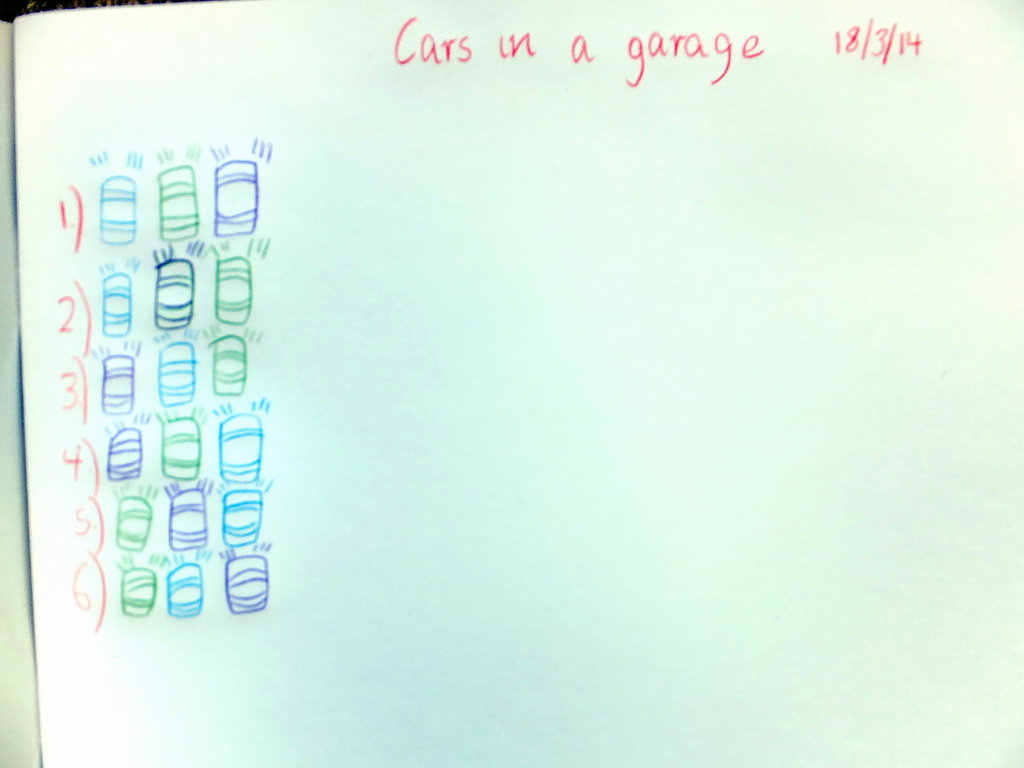 Cars in a garage 18/3/14
1.)
2)
3.)
4.)
5.)
6)